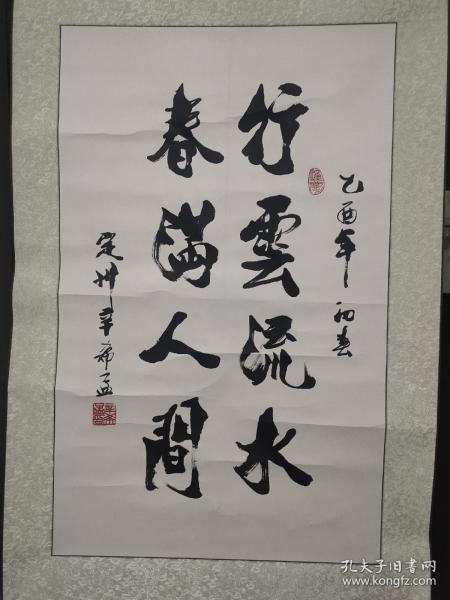 乙酉年初春
行雲流水
春满人間
定州辛希孟
孔夫子旧书网
www.kongfz.com